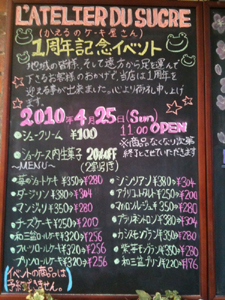 L'ATELIER DU SUCRE
(かえるのケーキ屋さん)
1周年記念イベント
地域の皆様、そして遠方から足を運んで
下さるお客様のおかげで、当店は1周年を
迎える事が出来ました。心より御礼申し上げ
ます。
2010年4月25日(Sun)
11:00 OPEN
・シュークリーム ¥100
※商品なくなり次第
終了とさせていただきます
・ショーケース内生菓子 20%OFF
(2割引き)
~MENU~
・苺のショートケーキ ¥350⇒280
・ダージリン ¥380⇒304
・マンジャリ ¥350⇒280
・チーズケーキ ¥250⇒200
・和三盆ロールケーキ ¥320⇒256
・フルーツロールケーキ ¥320⇒256
・プリンロールケーキ ¥320⇒256
・シシリアン ¥380⇒304
・アブリコタルト ¥250⇒200
・マロンカシス ¥350⇒280
・プラリネシトロン ¥380⇒304
・¥350⇒280
・¥350⇒280
・和三盆プリン ¥220⇒176
イベントの商品は
予約できません。